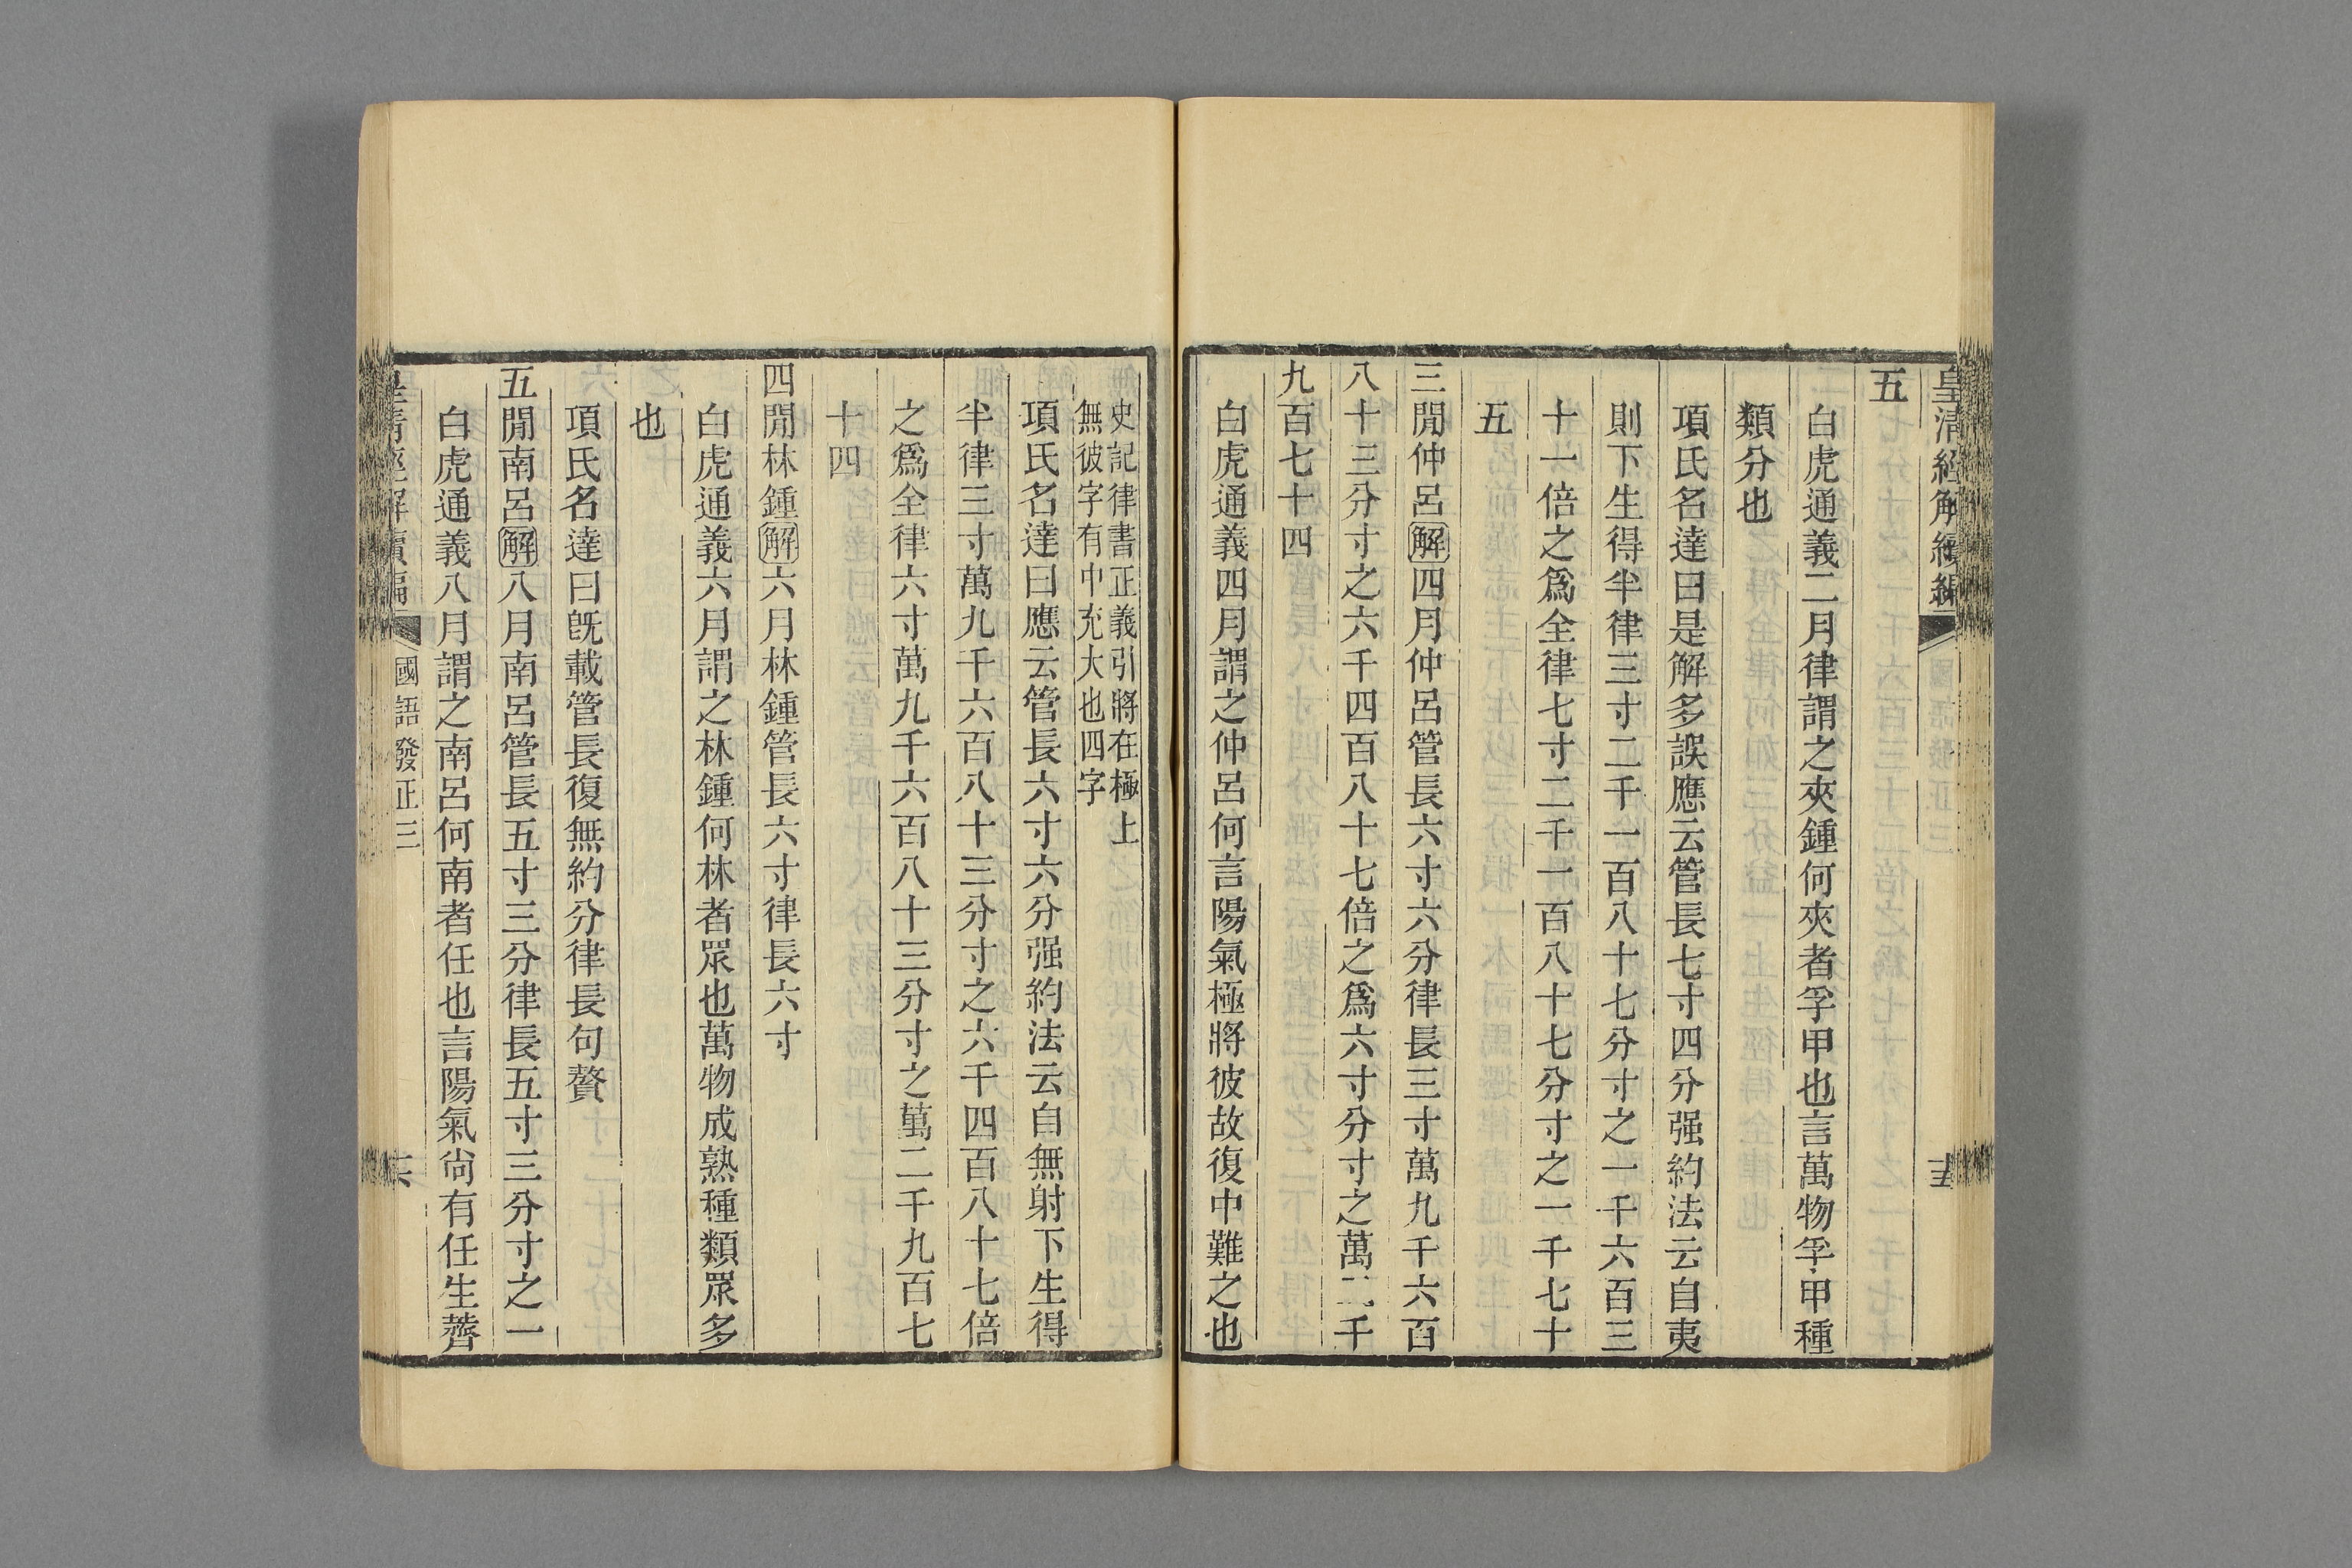 皇清經解續編
五
白虎通義二月律謂之夾鍾何夾者孚甲也言萬物孚甲種
類分也
項氏名達曰是解多誤應云管長七寸四分强約法云自夷
則下生得半律三寸二千一百八十七分寸之一千六百三
十一倍之爲全律七寸二千一百八十七分寸之一千七十
五
三閒仲呂解四月仲呂管長六寸六分律長三寸萬九千六百
八十三分寸之六千四百八十七倍之爲六寸分寸之萬二千
九百七十四
白虎通義四月謂之仲呂何言陽氣極將彼故復中難之也
史記律書正義引將在極上
無彼字有中充大也四字
項氏名達曰應云管長六寸六分强約法云自無射下生得
半律三寸萬九千六百八十三分寸之六千四百八十七倍
之爲全律六寸萬九千六百八十三分寸之萬二千九百七
十四
四閒林鍾解六月林鍾管長六寸律長六寸
白虎通義六月謂之林鍾何林者眾也萬物成熟種類眾多
也
項氏名達曰旣載管長復無約分律長句贅
五閒南呂解八月南呂管長五寸三分律長五寸三分寸之一
白虎通義八月謂之南呂何南者任也言陽氣尙有任生薺
皇清經解續編 國語發正三